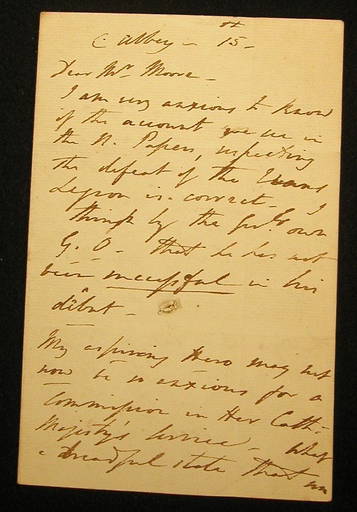 C. Abbey - 15th -
Dear Mr. Moore -
I am very anxious to know
if the account we see in
the N. Papers, respecting
the defeat of the Evans
Legion is correct. I
think by the Genl's own
G. O. - that he has not
been successful in his
débût -
My aspiring Hero may not
now be so anxious for a
Commission in Her Cath:
Majesty's Service - What
a dreadful state that un